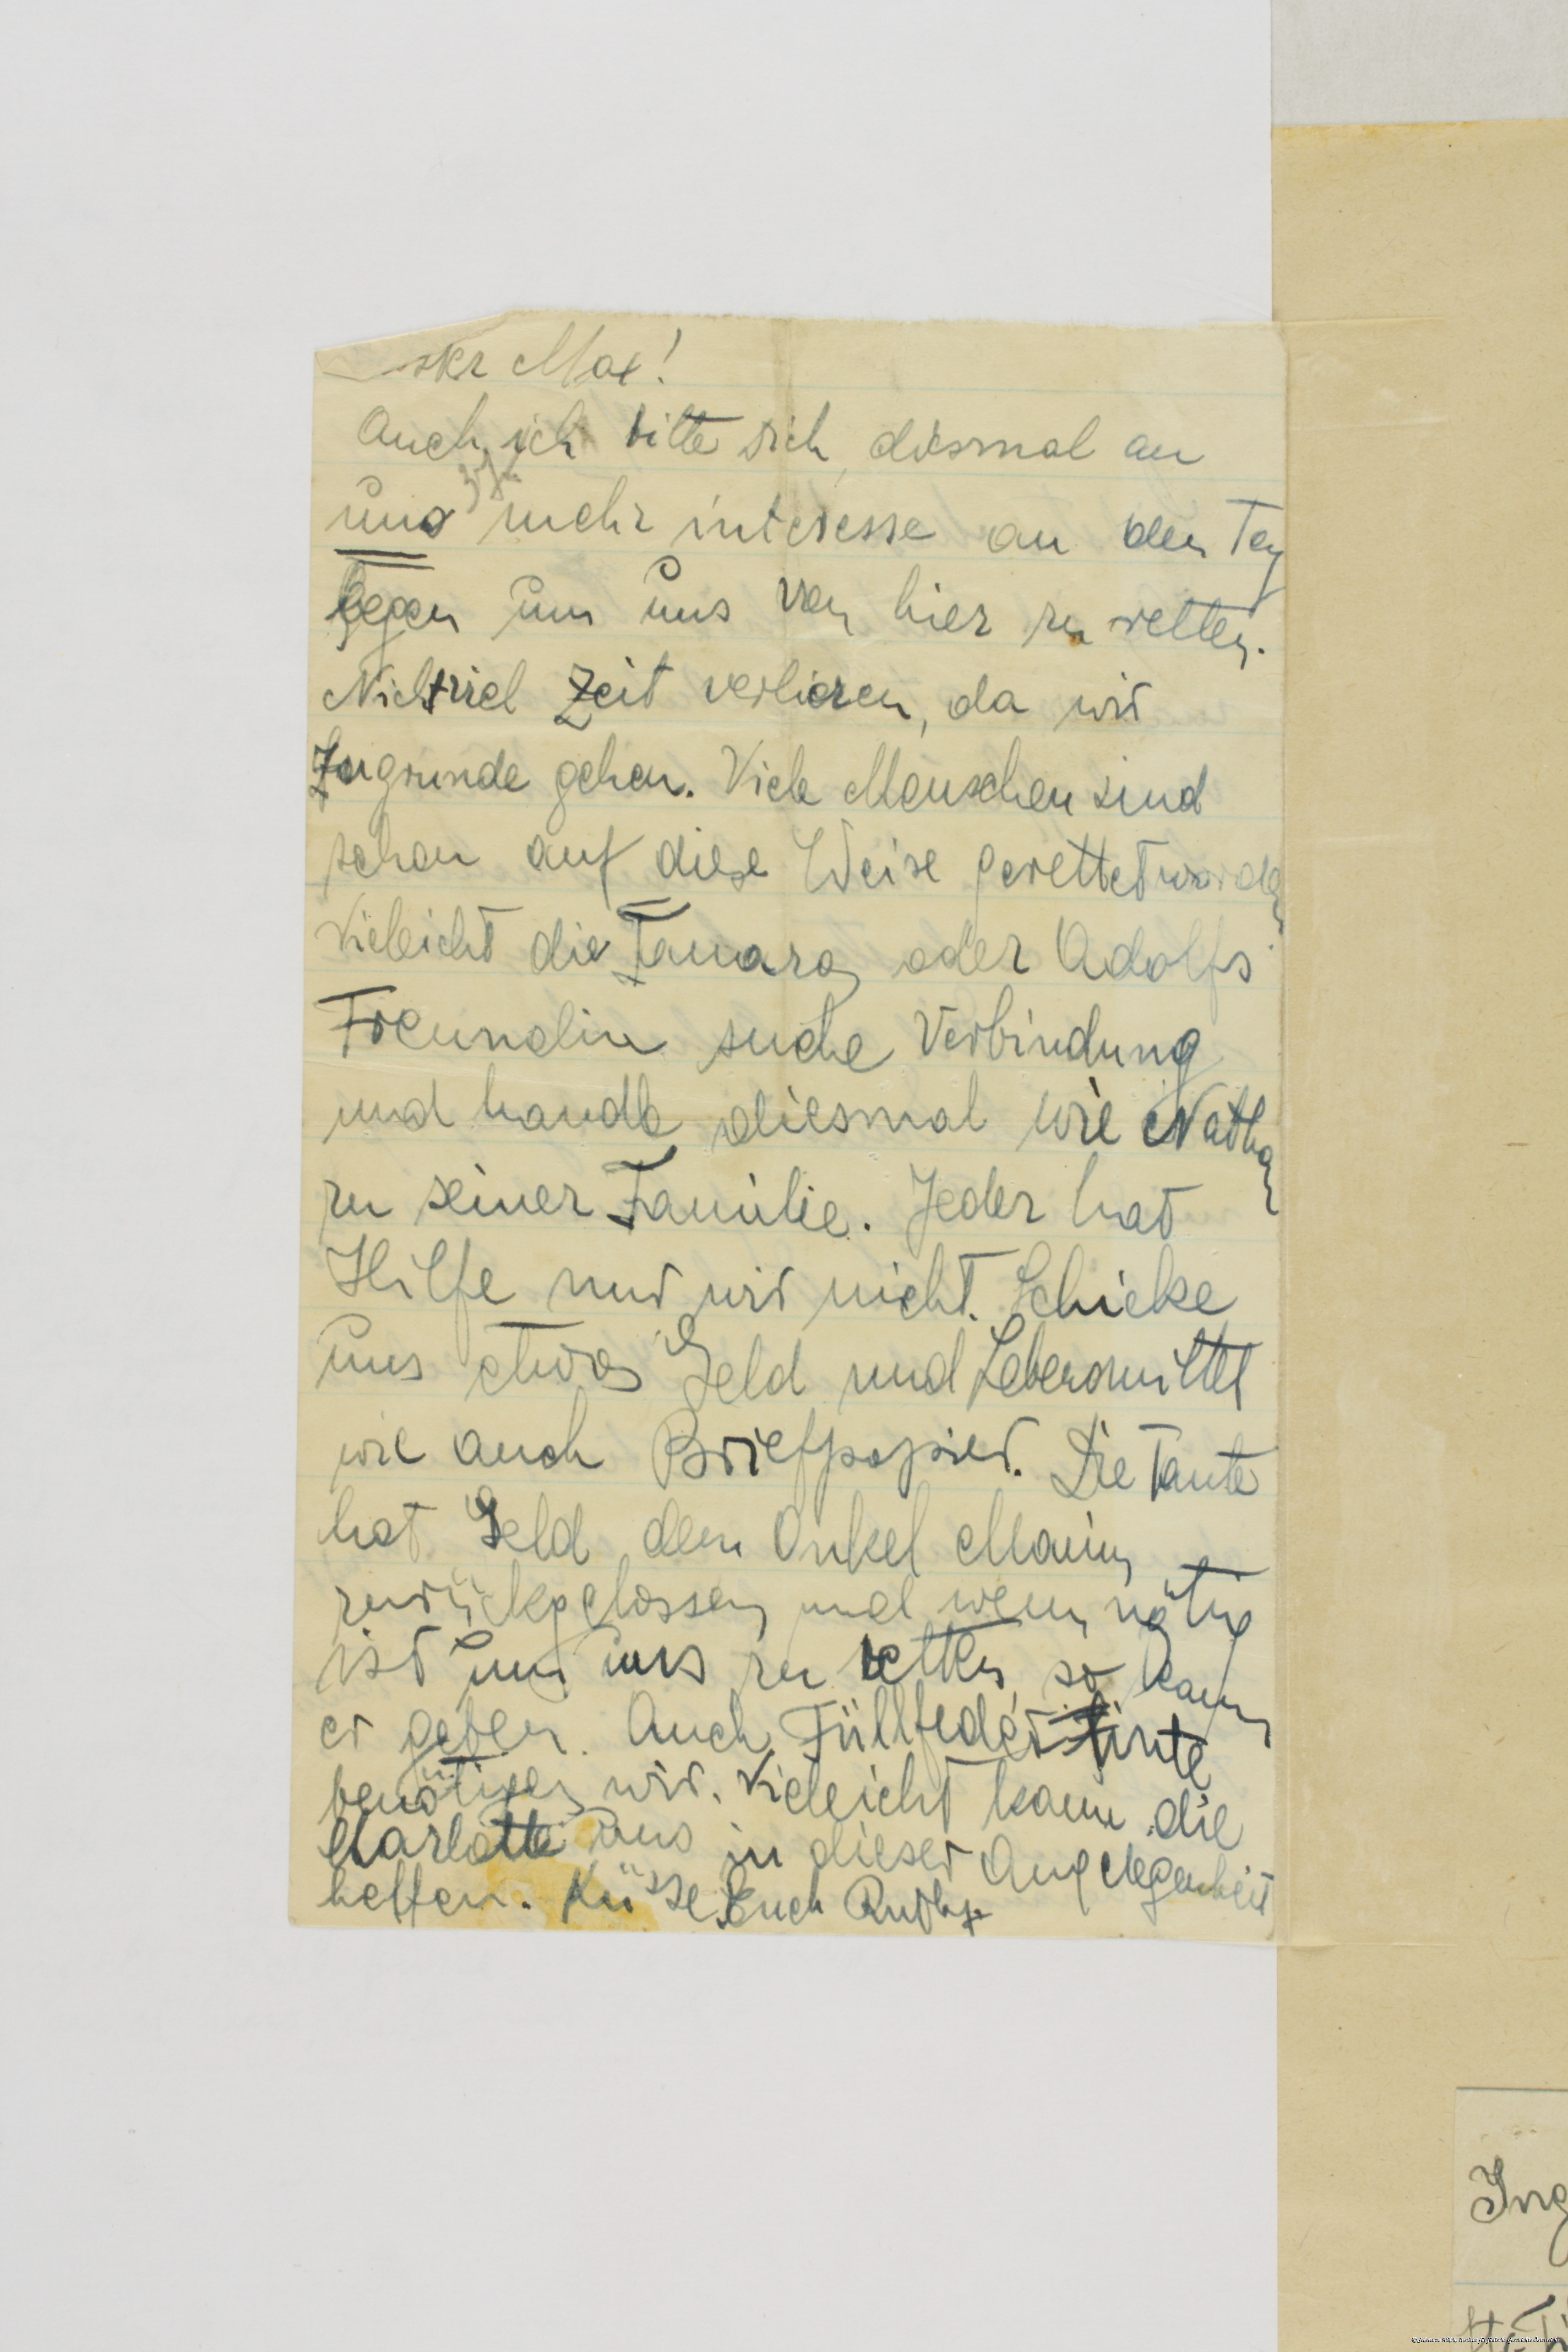 Max!
Auch ich bitte dich, diesmal an
uns mehr interesse an den Tag
legen um uns von hier zu retten.
Nicht viel Zeit verlieren, da wir
Zugrunde gehen. Viele Menschen sind
schon auf diese Weise gerettet worden
Vieleicht die Tamara oder Adolfs
Freundin suche Verbindung
und handle diesmal wie Nathan
zu seiner Familie. Jeder hat
Hilfe nur wir nicht. Schicke
uns etwas Geld und Lebensmittel
wie auch Briefpapier. Die Tante
hat Geld dem Onkel
zurückgelassen und wenn nötig
ist um uns zu retten so kann
er geben. Auch Füllfeder tinte
benötigen wir. Vieleicht kann die
Charlotte uns in dieser Angelegenheit
helfen. Küsse Euch
Ing